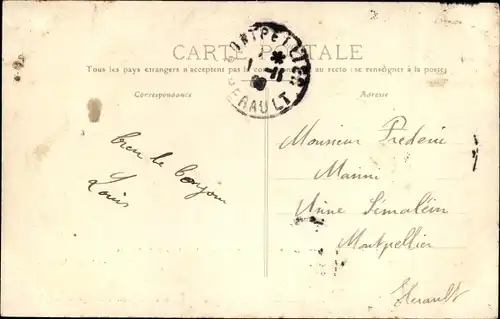 CARTE POSTALE
Tous les pays étrangers n'acceptent pas la correspondance au recto (se renseigner à la poste)
MONTPELLIER
HERAULT
Correspondance
Adresse
bien le bonjour
Louis
Monsieur Frédéric
Montpellier
Hérault